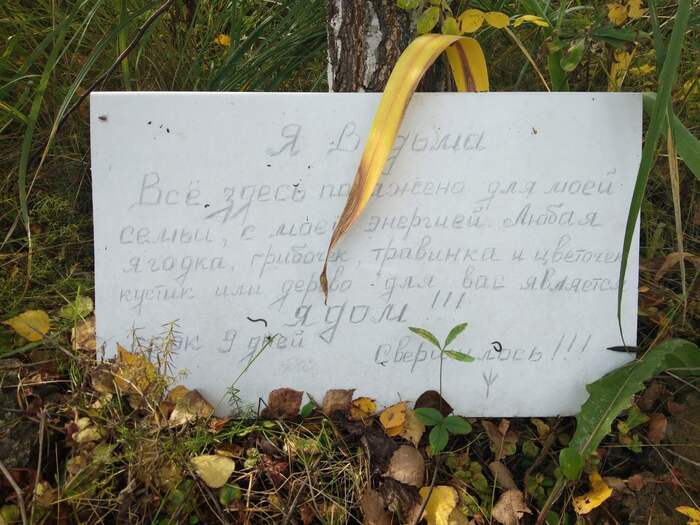 Я Ведьма
Всё здесь посажено для моей
семьи, с моей энергией. Любая
ягодка, грибочек, травинка и цветочек
кустик или дерево для вас является
ядом!!!
Срок 9 дней Свершилось!!!